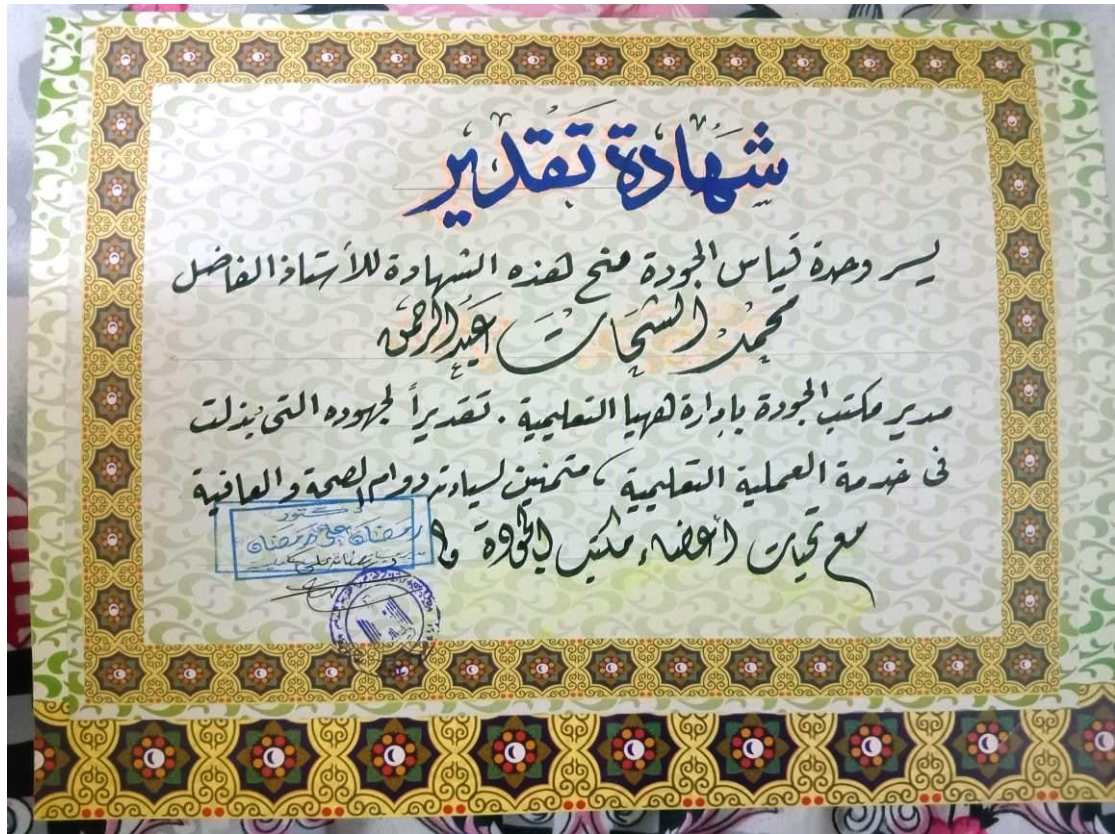 شهادة تقدير
يسر وحدة قياس الجودة منح هذه الشهادة للأستاذ الفاضل
محمد الشحات عبدالرحمن
مدير مكتب الجودة بإدارة ههيا التعليمية . تقديراً لجهوده التى بذلت
فى خدمة العملية التعليمية ، متمنين لسيادته دوام الصحة والعافية
مع تحيات أعضاء مكتب الجودة
دكتور
رمضان على رمضان